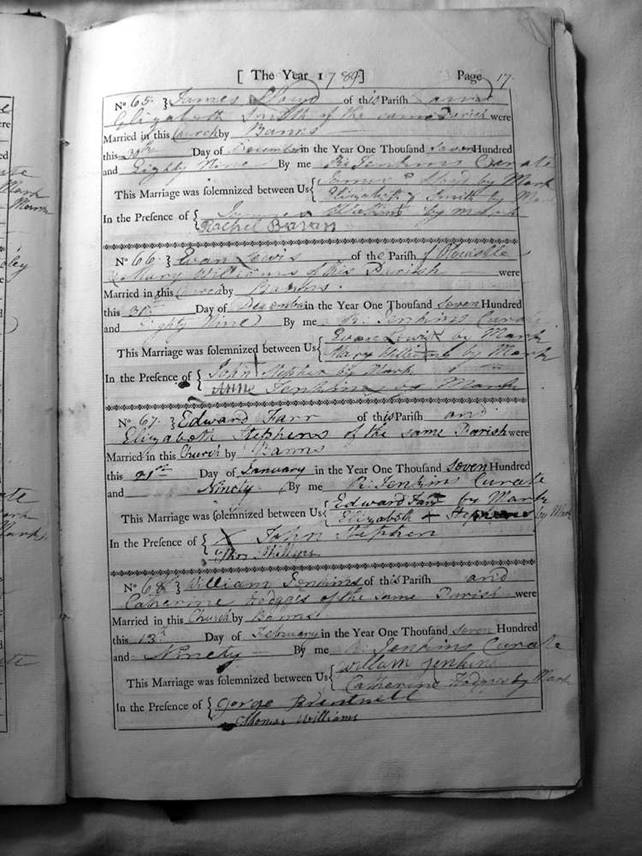 [ The Year 1789 ] Page 17
No 65. } James Lloyd of this Parish and
Elizabeth Smith of the same Parish were
Married in this Church by Banns
this 30th Day of December in the Year One Thousand Seven Hundred
and Eighty Nine By me R. Jenkins Curate
This Marriage was solemnized between Us { James Lloyd by Mark
Elizabeth Smith by
In the Presence of { by mark
Rachel
No 66. } Evan Lewis of the Parish of
Mary Williams of this Parish were
Married in this Church by Banns.
this 31st Day of December in the Year One Thousand Seven Hundred
and Eighty Nine By me R. Jenkins Curate
This Marriage was solemnized between Us { Evan Lewis by Mark
Mary Williams by Mark
In the Presence of { John Stephen by Mark
Anne Jenkins by Mark
No 67. } Edward Farr of this Parish and
Elizabeth Stephens of the same Parish were
Married in this Church by Banns
this 21st Day of January in the Year One Thousand Seven Hundred
and Ninety By me R. Jenkins Curate
This Marriage was solemnized between Us { Edward Farr by Mark
Elizabeth + Stephens by Mark
In the Presence of { X John Stephen
Thos Phillips
No 68. } William Jenkins of this Parish and
Catherine of the same Parish were
Married in this Church by Banns
this 13th Day of February in the Year One Thousand Seven Hundred
and Ninety By me R. Jenkins Curate
This Marriage was solemnized between Us { William Jenkins
Catherine by Mark
In the Presence of { George
Thomas Williams